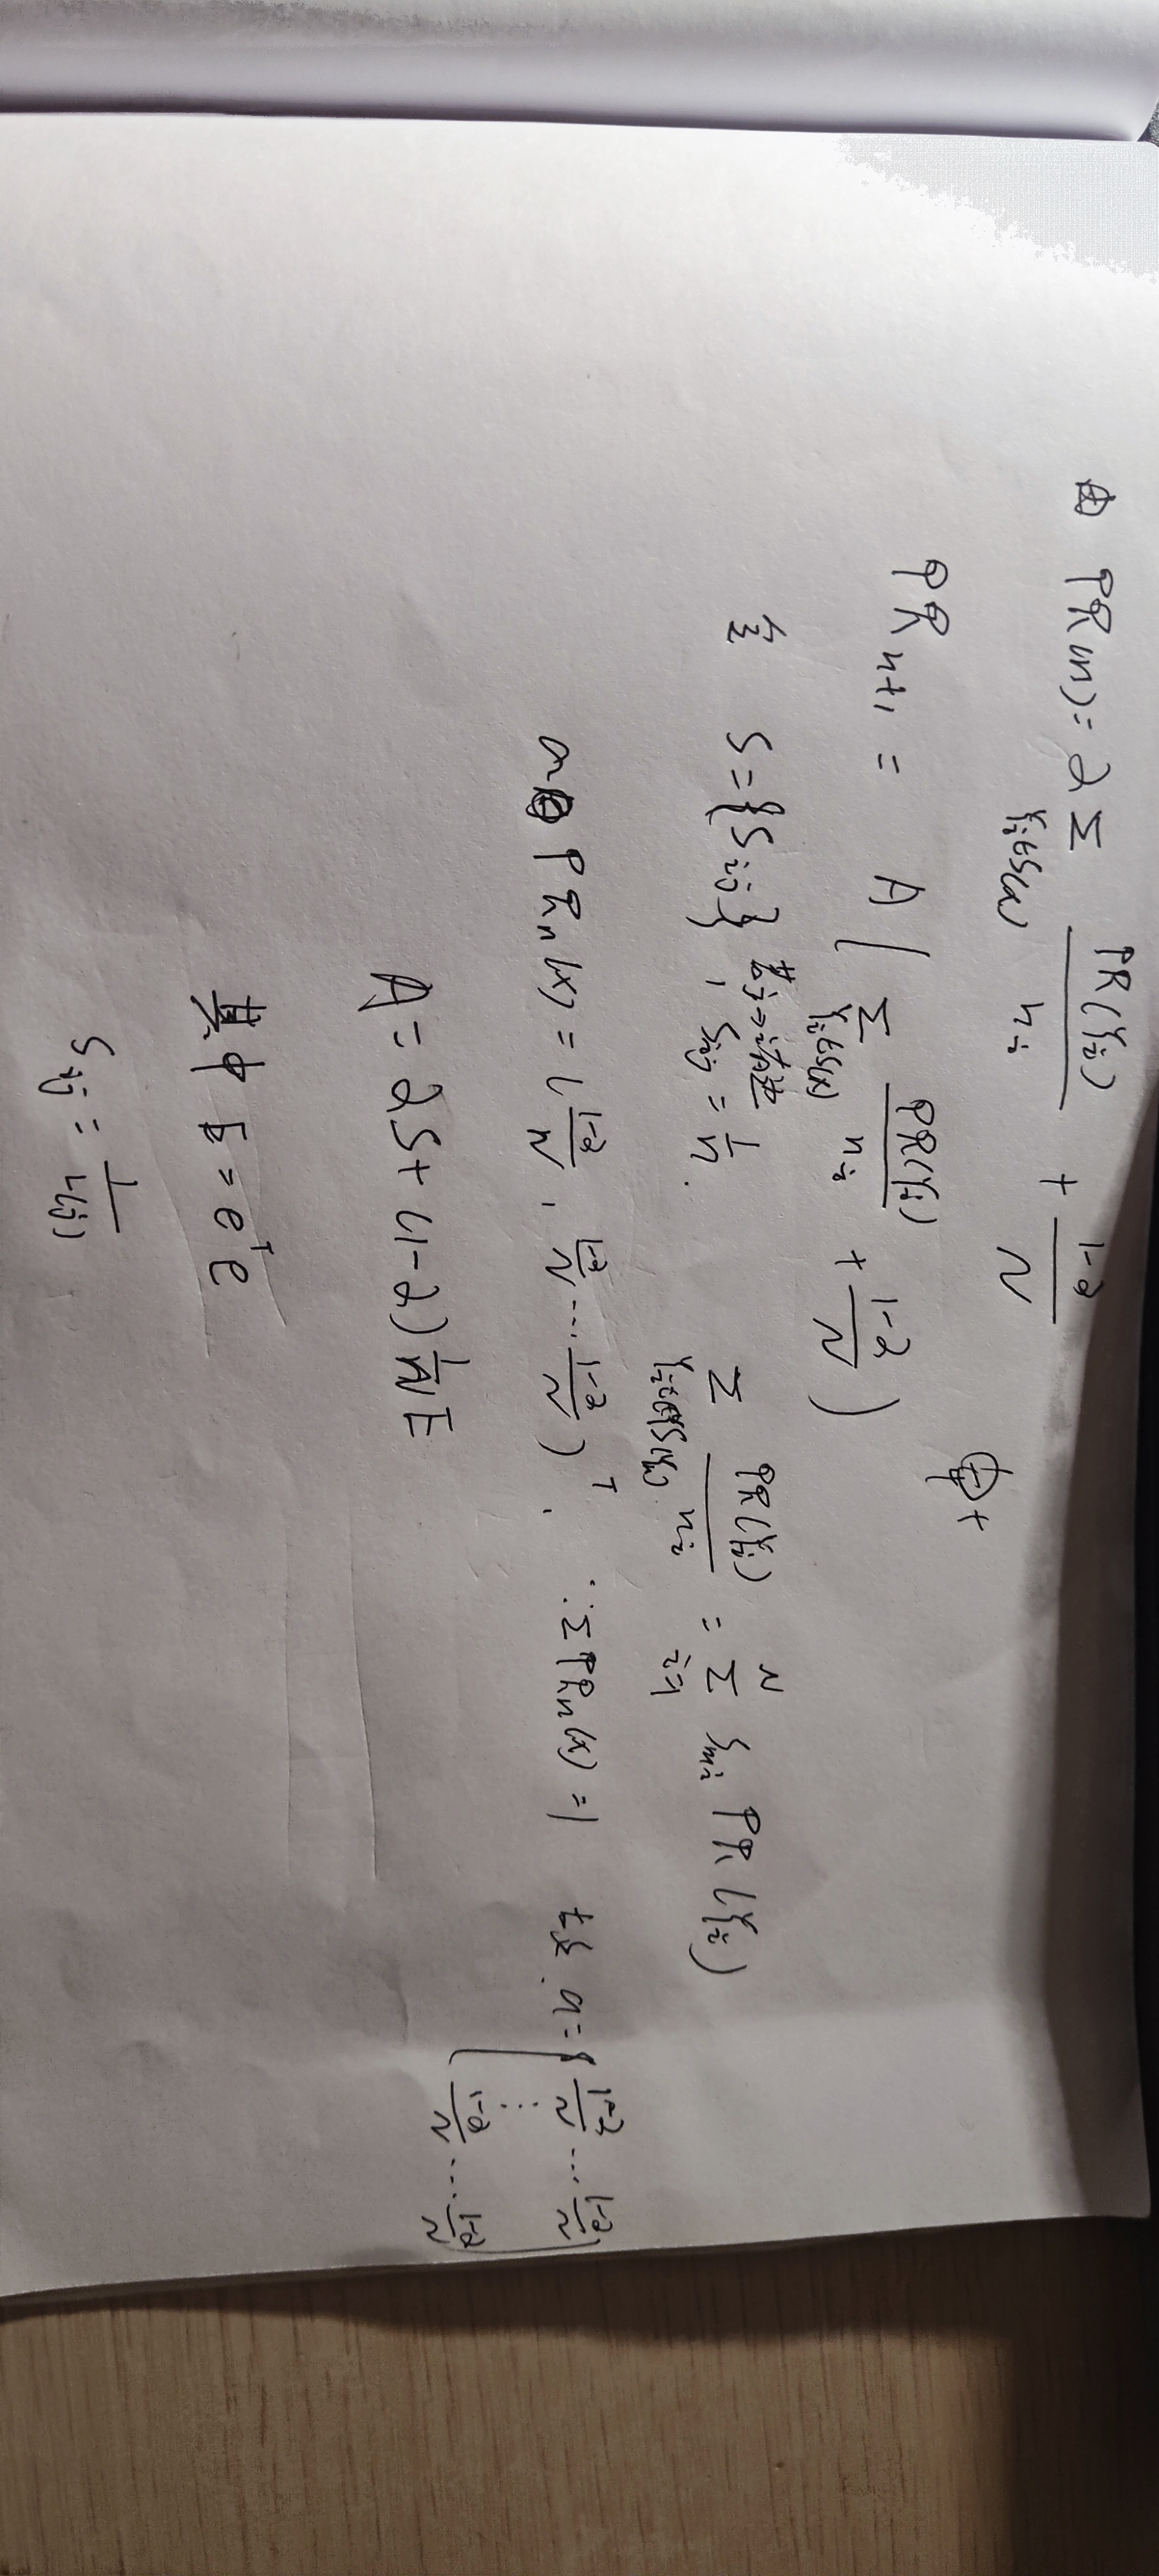 由 PR(x) = α Σ_{Y_i∈S(x)} PR(Y_i)/n_i + (1-α)/N
PR_{n+1} = A ( Σ_{Y_i∈S(x)} PR(Y_i)/n_i + (1-α)/N )
令 S = {S_{ij}}, 若j→i有边 S_{ij} = 1/n. Σ_{Y_i∈S(x)} PR(Y_i)/n_i = Σ_{i=1}^{N} S_{mi} PR(Y_i)
a PR_n(x) = ( (1-α)/N , (1-α)/N ... (1-α)/N )^T . ∵ΣPR_n(x) = 1 故 a = [ (1-α)/N ... (1-α)/N ⋮ (1-α)/N ... (1-α)/N ]
A = αS + (1-α) 1/N E
其中 E = e^T e
S_{ij} = 1/L(j)